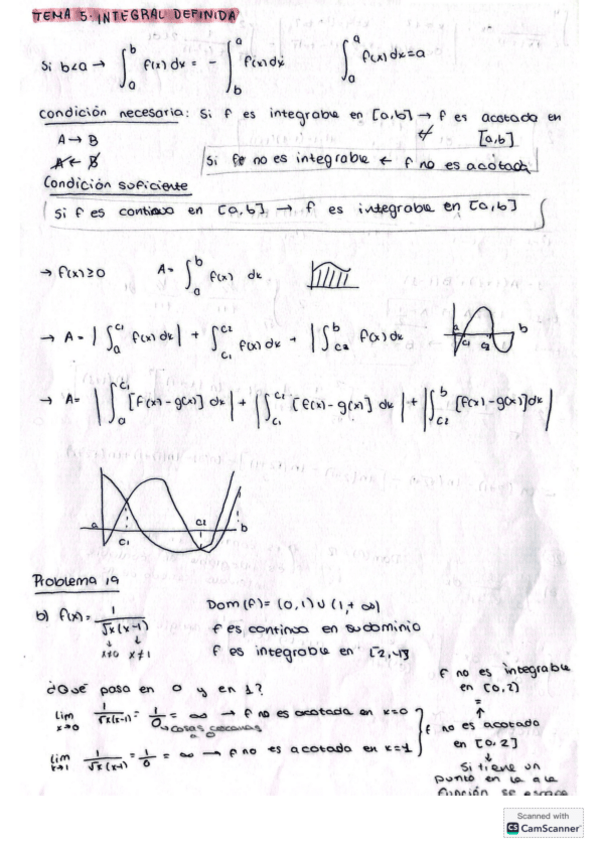 TEMA 5: INTEGRAL DEFINIDA
Si b<a → ∫_a^b f(x) dx = - ∫_b^a f(x) dx ∫_a^a f(x) dx = a
Condición necesaria: Si f es integrable en [a,b] → f es acotada en [a,b]
A → B
A ← B
Si f no es integrable ← f no es acotada
Condición suficiente
Si f es continua en [a,b] → f es integrable en [a,b]
→ f(x) ≥ 0 A = ∫_a^b f(x) dx
→ A = |∫_a^c1 f(x) dx| + ∫_c1^c2 f(x) dx + |∫_c2^b f(x) dx
a c1 c2 b
→ A = |∫_a^c1 [f(x) - g(x)] dx| + |∫_c1^c2 [f(x) - g(x)] dx| + |∫_c2^b [f(x) - g(x)] dx|
a c1 c2 b
Problema 19
b) f(x) = 1/(√x (x-1)) Dom(f) = (0,1) ∪ (1,+∞)
f es continua en su dominio
x≠0 x≠1 f es integrable en [2,4]
¿Qué pasa en 0 y en 1?
lim x→0 1/(√x (x-1)) = 1/0 = ∞ → f no es acotada en x=0
cosas cercanas a 0
lim x→1 1/(√x (x-1)) = 1/0 = ∞ → f no es acotada en x=1
f no es integrable
en [0,2]
f no es acotada
en [0,2]
Si tiene un
punto en la a la
función se escapa
Scanned with
CS CamScanner